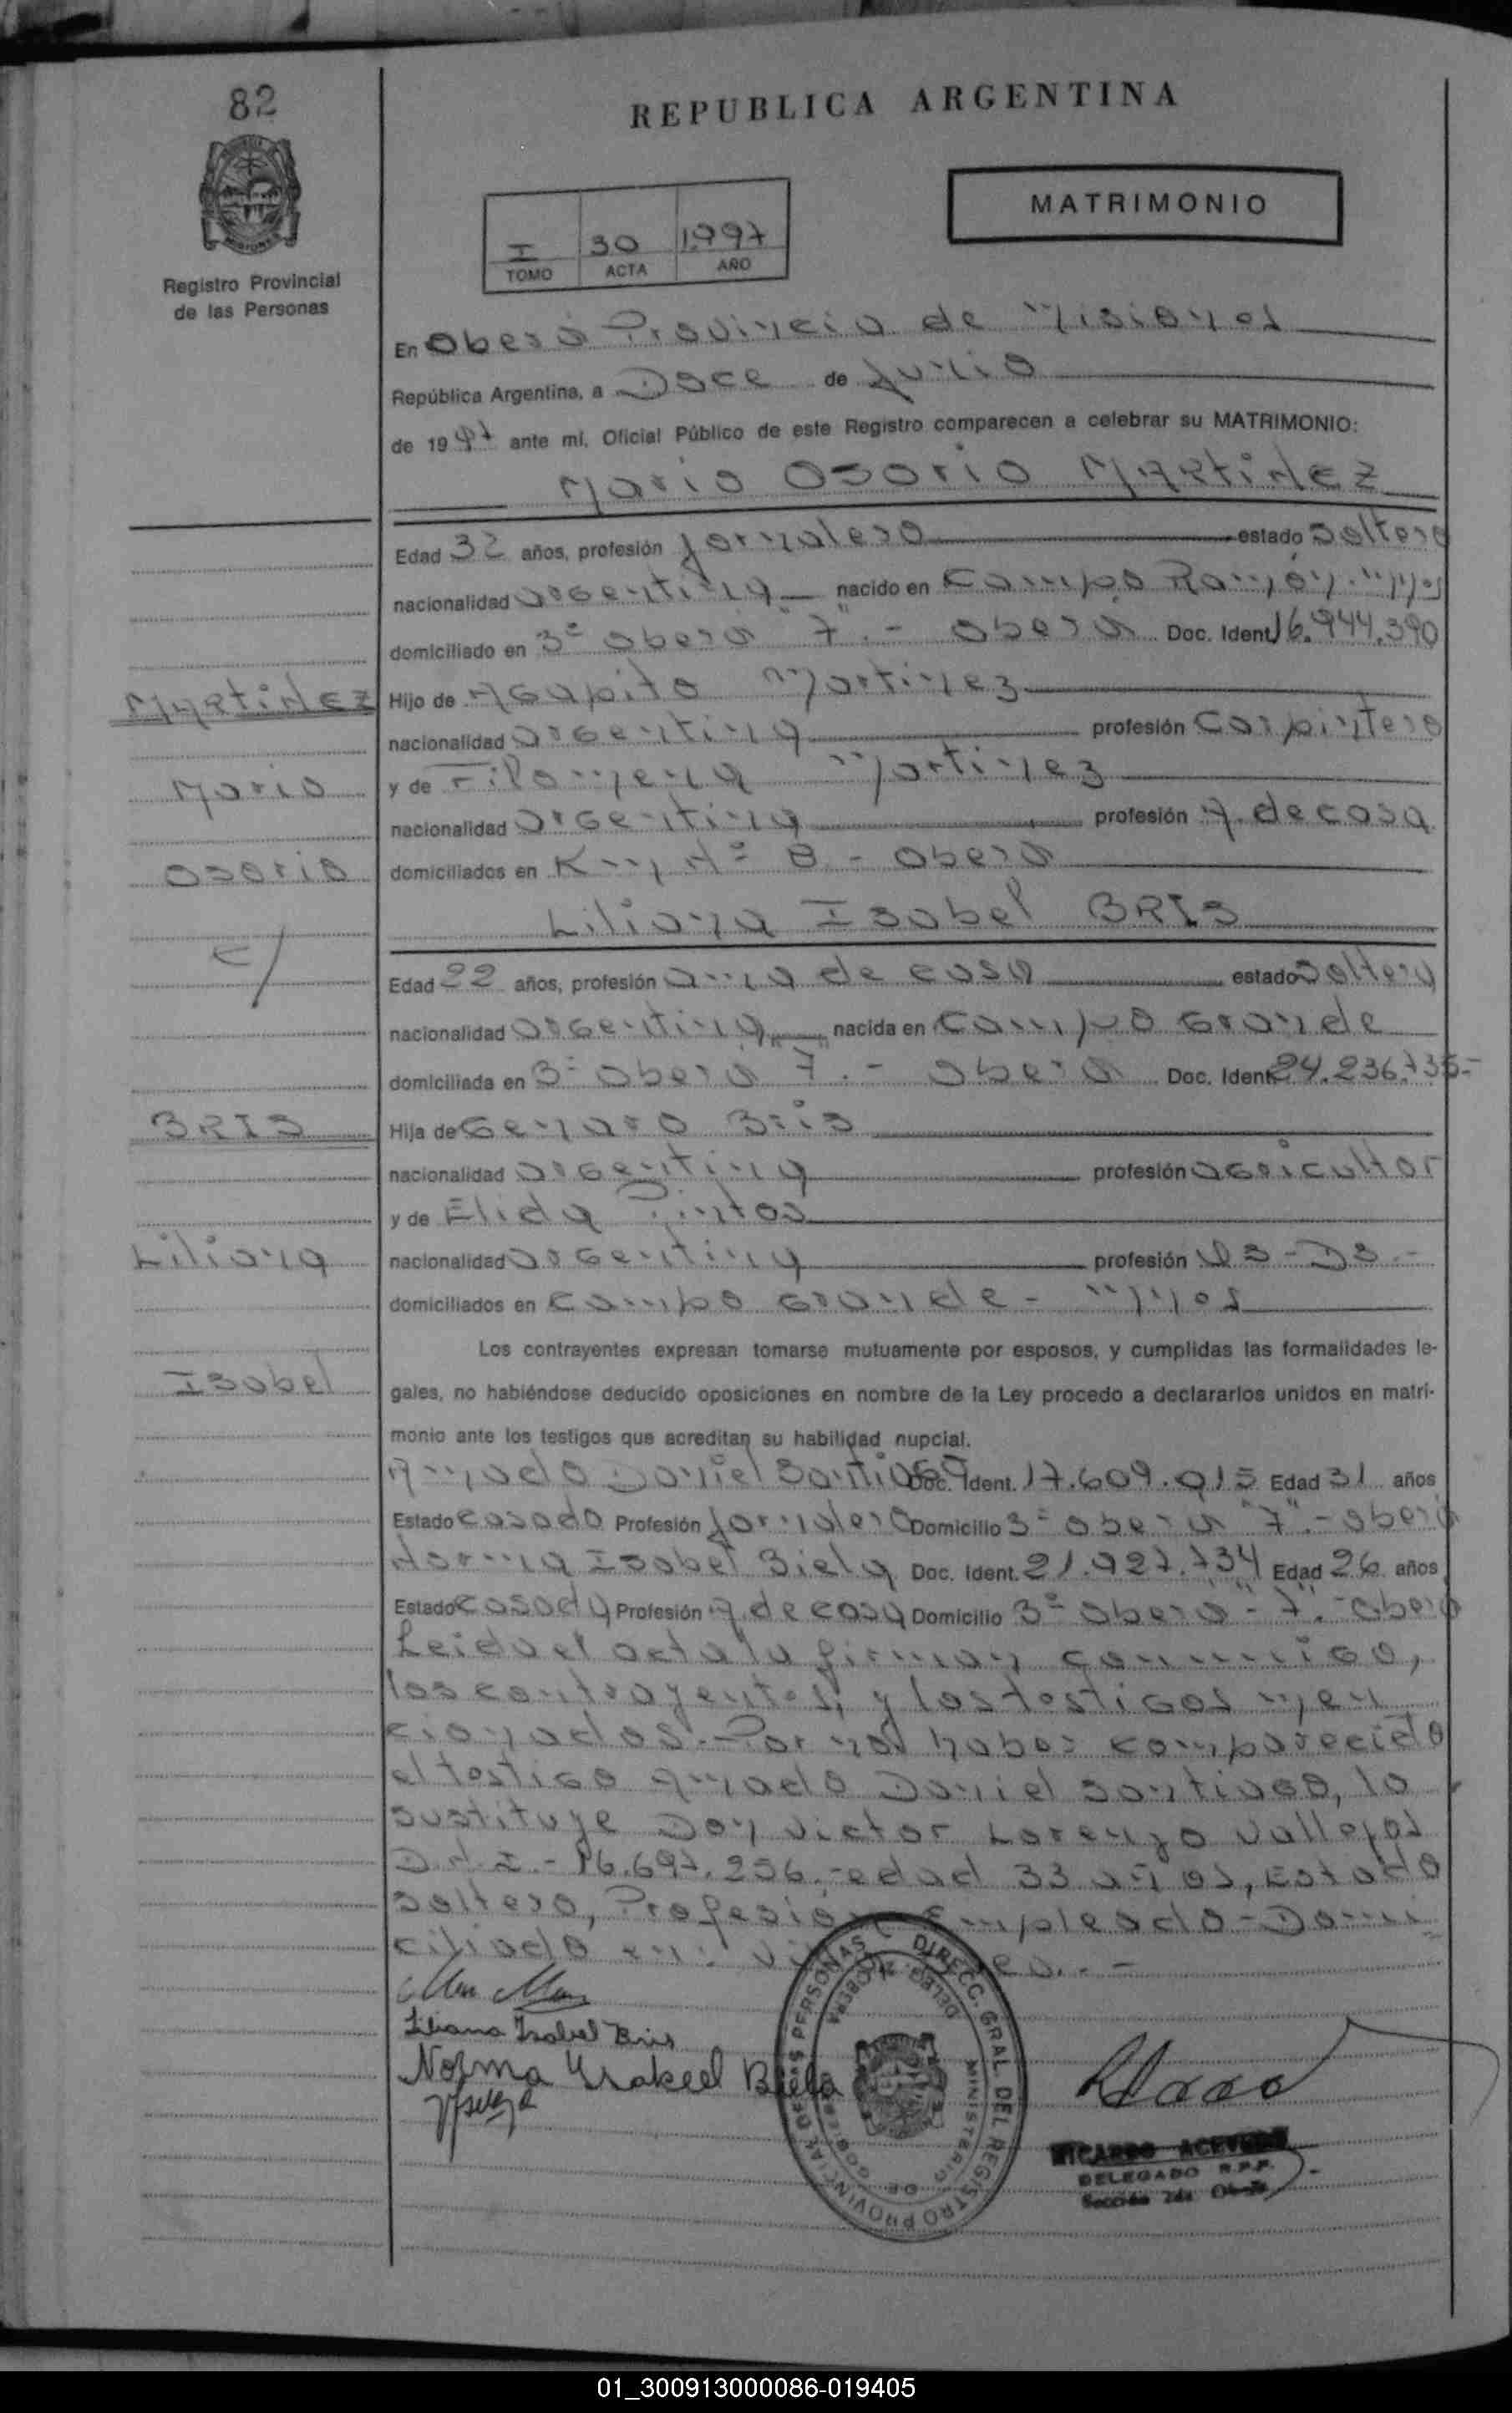 82
REPUBLICA ARGENTINA
MATRIMONIO
I 30 1997
TOMO ACTA AÑO
Registro Provincial
de las Personas
En Oberá Provincia de Misiones
República Argentina, a Doce de Junio
de 1997 ante mí, Oficial Público de este Registro comparecen a celebrar su MATRIMONIO:
Mario Osorio MARTINEZ
Edad 32 años, profesión Jornalero estado Soltero
nacionalidad argentina nacido en Campo Ramón. Mnes
domiciliado en 3º Oberá "7".- Oberá Doc. Ident. 16.944.390
MARTINEZ
Hijo de Agapito Martinez
nacionalidad argentina profesión Carpintero
Mario
y de Filomena Martinez
nacionalidad argentina profesión A. de casa
Osorio
domiciliados en Km Nº 8 - Oberá
Liliana Isabel BRIS
c/
Edad 22 años, profesión ama de casa estado Soltera
nacionalidad argentina nacida en Campo Grande
domiciliada en 3º Oberá "7".- Oberá Doc. Ident. 24.236.735-
BRIS
Hija de Genaro Bris
nacionalidad argentina profesión agricultor
y de Elida Pintos
Liliana
nacionalidad argentina profesión Qs-Ds.-
domiciliados en Campo Grande - Mnes
Los contrayentes expresan tomarse mutuamente por esposos, y cumplidas las formalidades le-
Isabel
gales, no habiéndose deducido oposiciones en nombre de la Ley procedo a declararlos unidos en matri-
monio ante los testigos que acreditan su habilidad nupcial.
Amado Daniel Santiago Doc. Ident. 17.609.015 Edad 31 años
Estado casado Profesión Jornalero Domicilio 3º Oberá "7".- Oberá
Norma Isabel Biela Doc. Ident. 21.927.734 Edad 26 años
Estado casada Profesión A. de casa Domicilio 3º Oberá - "7".- Oberá
Leida el acta la firman conmigo,
los contrayentes, y los testigos men
cionados.- Por no haber comparecido
el testigo Amado Daniel Santiago, lo
sustituye Don Victor Lorenzo Vallejos
D.N.I.- 16.697.256.- edad 33 años, Estado
soltero, Profesión Empleado - Domi
ciliado en:
Liliana Isabel Bris
Norma Ysabel Biela
DIRECC. GRAL. DEL REGISTRO PROVINCIAL DE LAS PERSONAS
MINISTERIO DE GOBIERNO
DELEG. OBERA
RICARDO ACEVEDO
DELEGADO R.P.P.
Sección 2da Oberá
01_300913000086-019405